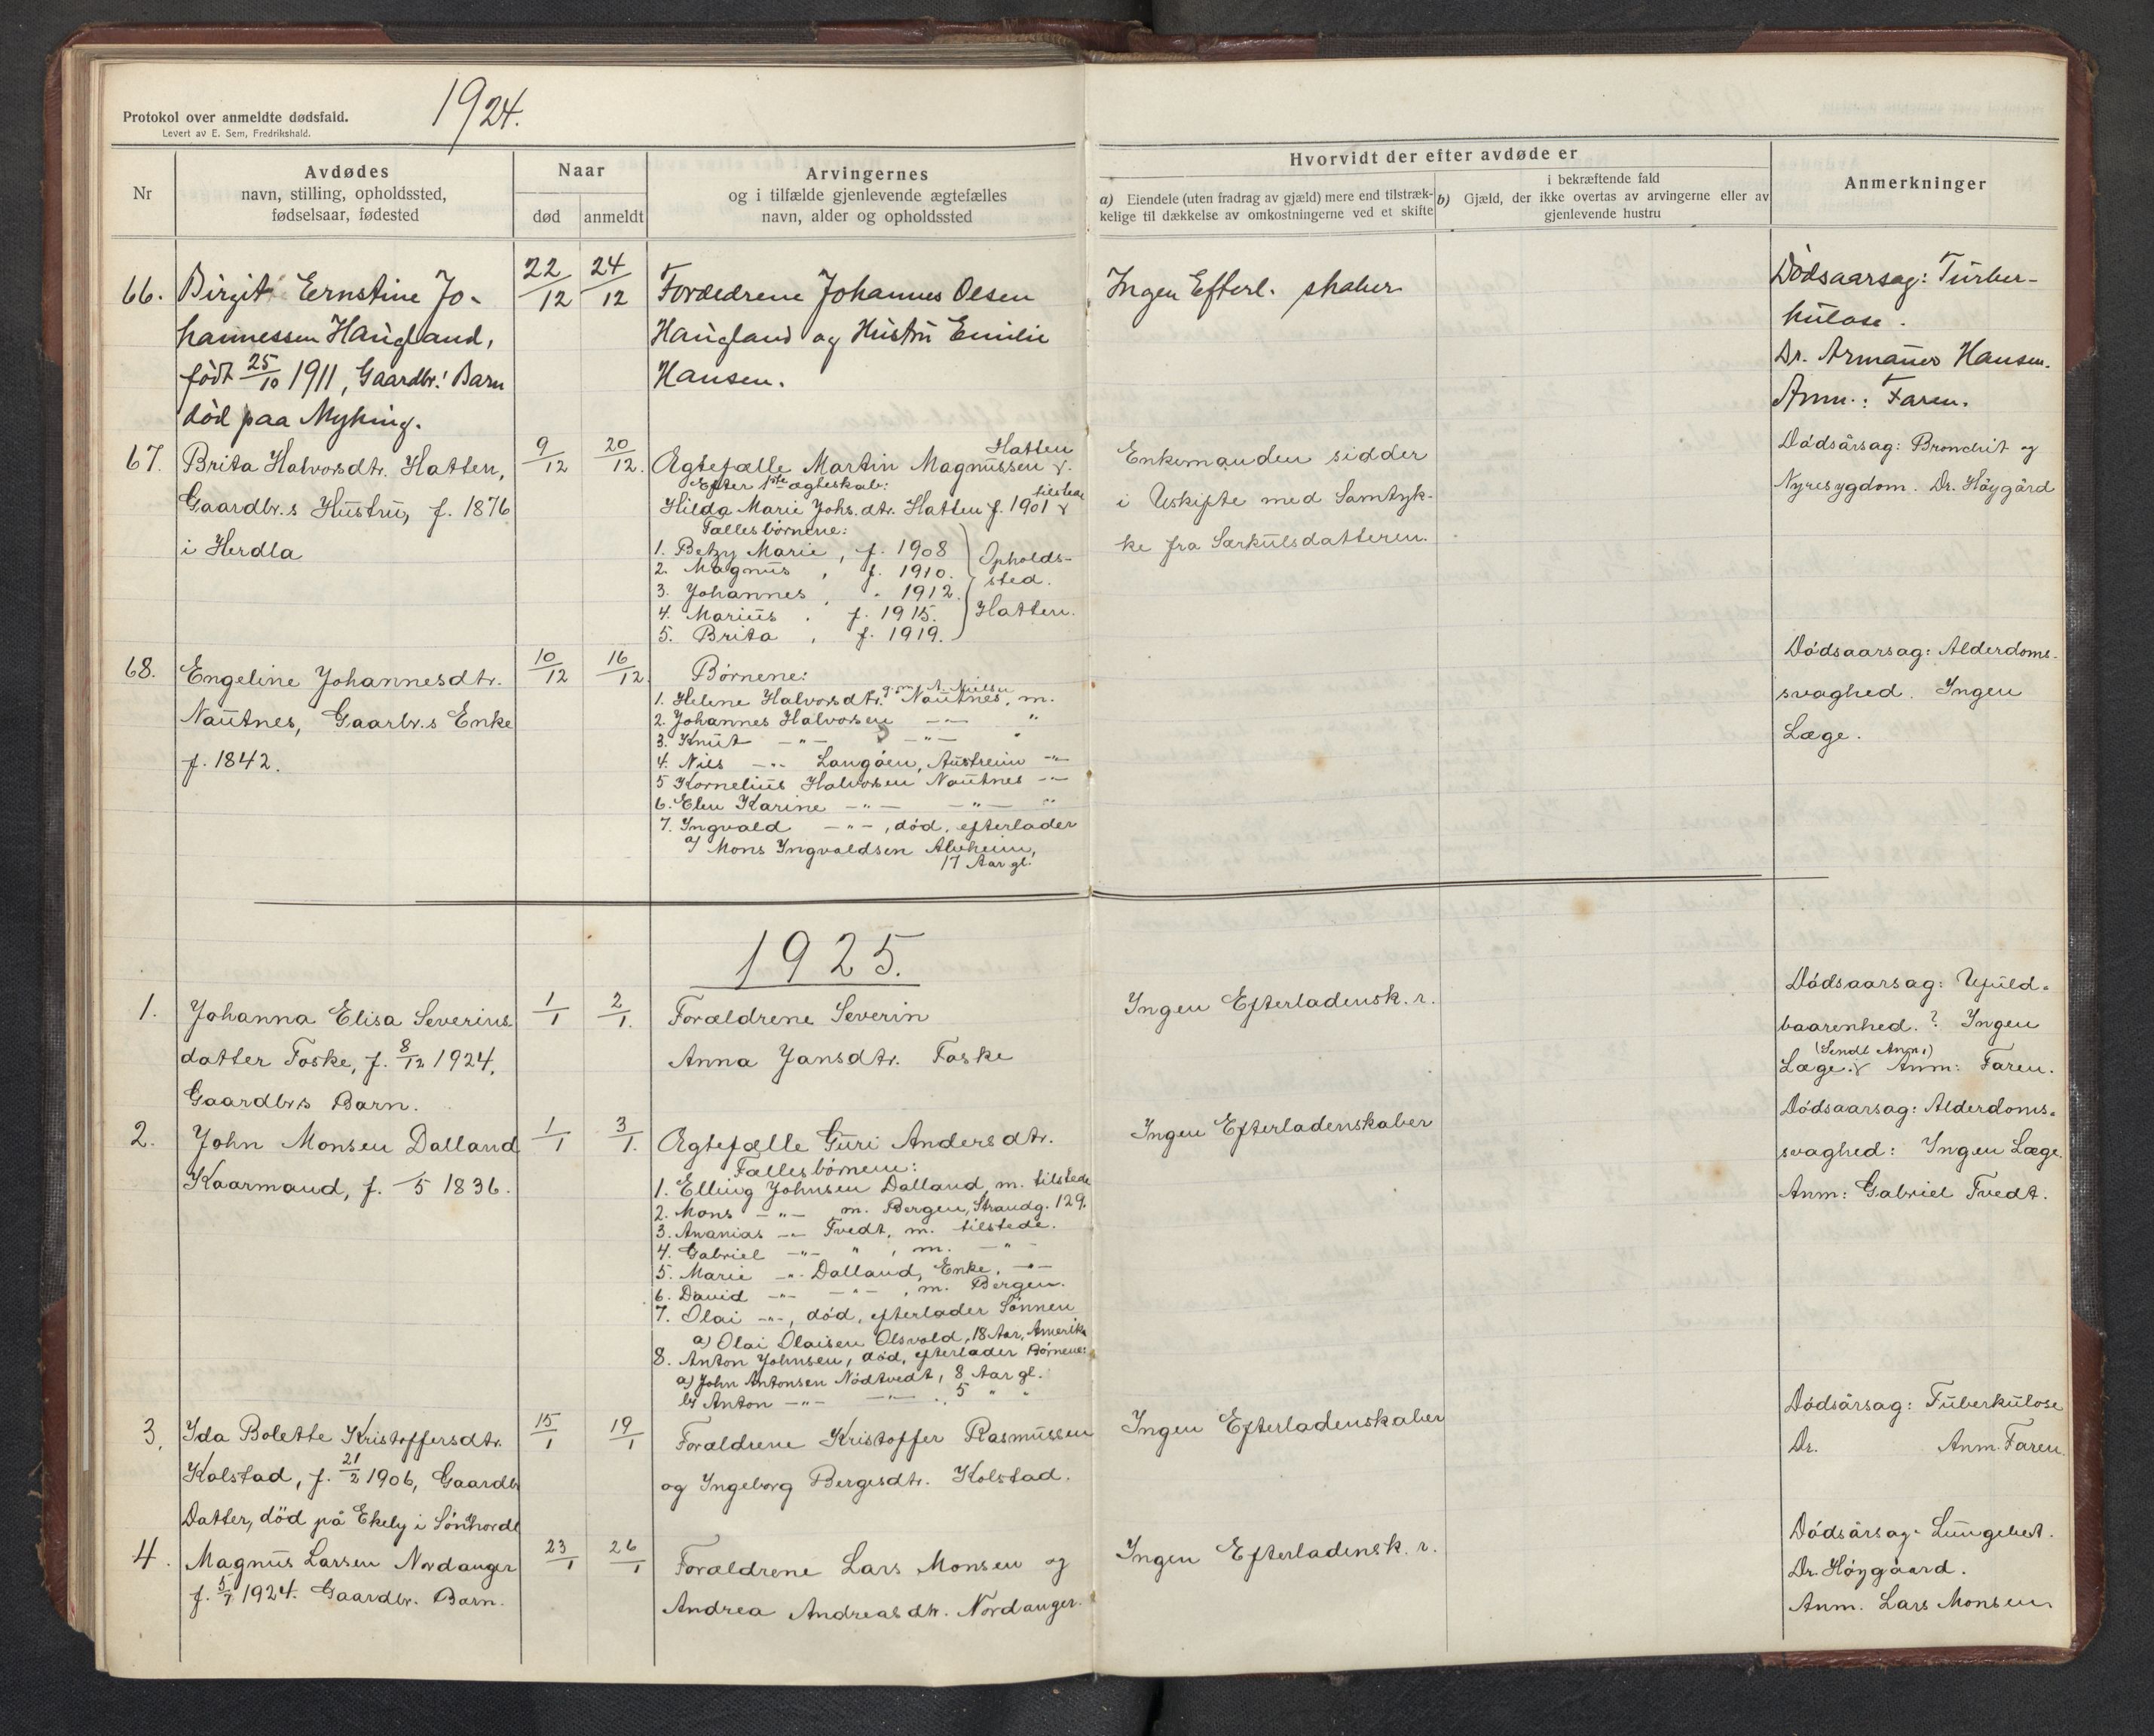 1924.
Protokol over anmeldte dødsfald.
Levert av E. Sem, Fredrikshald.
Nr
Avdødes
navn, stilling, opholdssted,
fødselsaar, fødested
Naar
død
anmeldt
Arvingernes
og i tilfælde gjenlevende ægtefælles
navn, alder og opholdssted
Hvorvidt der efter avdøde er
a) Eiendele (uten fradrag av gjæld) mere end tilstræk-
kelige til dækkelse av omkostningerne ved et skifte
i bekræftende fald
b) Gjæld, der ikke overtas av arvingerne eller av
gjenlevende hustru
Anmerkninger
66.
Birgit Ernstine Jo-
hannessen Haugland,
født 25/10 1911, Gaardbr.' Barn
død paa Myking.
22/12
24/12
Forældrene Johannes Olsen
Haugland og Hustru Emilie
Hansen.
Ingen Efterl. skaber
Dødsaarsag: Turber-
kulose.
Dr. Armauer Hansen.
Anm.: Faren.
67.
Brita Halvorsdtr. Hatten,
Gaardbr.s Hustru, f. 1876
i Herdla
9/12
20/12.
Hatten
Ægtefælle Martin Magnussen
Efter 1ste ægteskab:
tilstede
Hilda Marie Johs.dtr. Hatten f. 1901
Fællesbørnene:
1. Betzy Marie, f. 1908
2. Magnus, f. 1910.
3. Johannes, " 1912.
4. Marius, f. 1915.
5. Brita, f. 1919.
Opholds-
sted.
Hatten.
Enkemanden sidder
i Uskifte med Samtyk-
ke fra Særkulsdatteren.
Dødsårsag: Bronchit og
Nyresygdom. Dr. Høygård
68.
Engeline Johannesdtr.
Nautnes, Gaarbr.s Enke
f. 1842.
10/12
16/12
Børnene:
g. m. A. Nielsen
1. Helene Halvorsdtr. Nautnes, m.
2. Johannes Halvorsen -"- "
3. Knut -"- -"- "
4. Nils -"- Langøen, Austreim -"-
5 Kornelius Halvorsen Nautnes -"-
6. Elen Karine -"- -"- "
7. Ingvald -"-, død, efterlader
a) Mons Ingvaldsen Alvheim,
17 Aar gl.
Dødsaarsag: Alderdoms-
svaghed. Ingen
Læge.
1925.
1.
Johanna Elisa Severins
datter Toske, f. 8/12 1924,
Gaardbrs Barn.
1/1
2/1.
Forældrene Severin
Anna Jansdtr. Toske
Ingen Efterladensk. r.
Dødsaarsag: Ufuld-
baarenhed.? Ingen
(Sendt Anm.)
Læge. Anm: Faren.
2.
John Monsen Dalland
Kaarmand, f. /5 1836.
1/1
3/1.
Ægtefælle Guri Andersdtr.
Fællesbørnene:
1. Elling Johnsen Dalland, m. tilstede
2. Mons -"- m. Bergen, Strandg. 129.
3. Ananias -"- Tvedt, m. tilstede.
4. Gabriel -"- ", m. -"-
5. Marie -"- Dalland, Enke, -"-
6. David -"- -"-, m. Bergen.
7. Olai -"-, død, efterlader Sønnen
a) Olai Olaisen Olsvold, 18 Aar, Amerika
8. Anton Johnsen, død, efterlader Børnene:
a) John Antonsen Nødtvedt, 8 Aar gl.
b) Anton -"- -"- 5 " "
Ingen Efterladenskaber
Dødsaarsag: Alderdoms-
svaghed: Ingen Læge.
Anm: Gabriel Tvedt.
3.
Ida Bolette Kristoffersdtr.
Kolstad, f. 21/2 1906, Gaardb
Datter, död på Ekely i Sønhordl
15/1
19/1
Forældrene Kristoffer Rasmussen
og Ingeborg Bergesdtr. Kolstad.
Ingen Efterladenskaber
Dødsårsag: Tuberkulose
Dr. Anm. Faren.
4.
Magnus Larsen Nordanger
f. 5/7 1924. Gaardbr. Barn.
23/1
26/1
Forældrene Lars Monsen og
Andrea Andreasdtr. Nordanger.
Ingen Efterladensk. r.
Dødsårsag: Lungebet.
Dr. Høygaard.
Anm. Lars Monsen